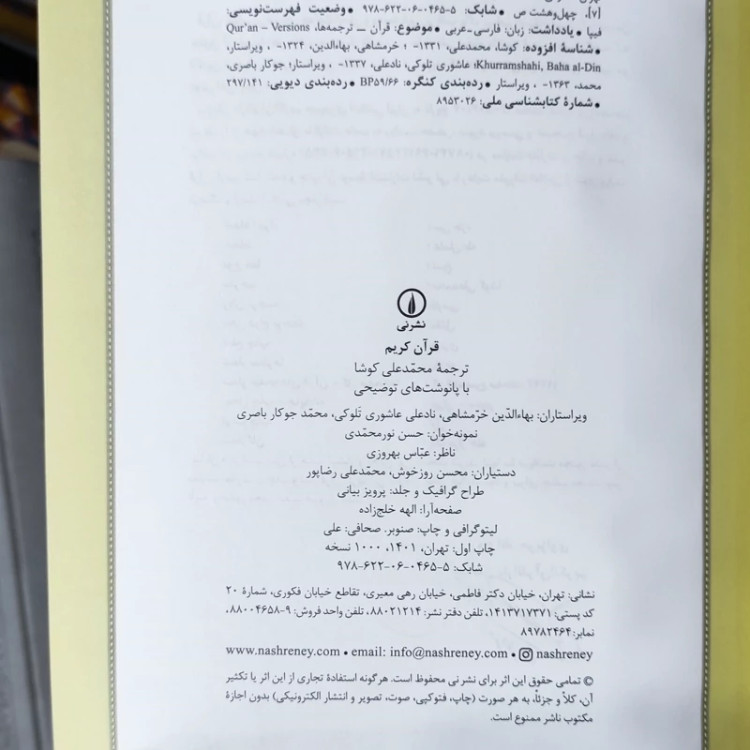 [۷]، چهل‌وهشت ص • شابک: ۵-۰۴۶۵-۰۶-۶۲۲-۹۷۸ • وضعیت فهرست‌نویسی:
فیپا • یادداشت: زبان: فارسی-عربی • موضوع: قرآن – ترجمه‌ها، Qur'an – Versions
• شناسهٔ افزوده: کوشا، محمدعلی، ۱۳۳۱- ؛ خرمشاهی، بهاءالدین، ۱۳۲۴- ، ویراستار،
Khurramshahi, Baha al-Din؛ عاشوری تلوکی، نادعلی، ۱۳۳۷- ، ویراستار؛ جوکار باصری،
محمد، ۱۳۶۳- ، ویراستار • رده‌بندی کنگره: BP۵۹/۶۶ • رده‌بندی دیویی: ۲۹۷/۱۴۱
• شمارهٔ کتابشناسی ملی: ۸۹۵۳۰۲۶
نشرنی
قرآن کریم
ترجمهٔ محمّدعلی کوشا
با پانوشت‌های توضیحی
ویراستاران: بهاءالدّین خرّمشاهی، نادعلی عاشوری تَلوکی، محمّد جوکار باصری
نمونه‌خوان: حسن نورمحمّدی
ناظر: عبّاس بهروزی
دستیاران: محسن روزخوش، محمّدعلی رضاپور
طراح گرافیک و جلد: پرویز بیانی
صفحه‌آرا: الهه خلج‌زاده
لیتوگرافی و چاپ: صنوبر. صحافی: علی
چاپ اول: تهران، ۱۴۰۱، ۱۰۰۰ نسخه
شابک: ۵-۰۴۶۵-۰۶-۶۲۲-۹۷۸
نشانی: تهران، خیابان دکتر فاطمی، خیابان رهی معیری، تقاطع خیابان فکوری، شمارهٔ ۲۰
کد پستی: ۱۴۱۳۷۱۷۳۷۱، تلفن دفتر نشر: ۸۸۰۲۱۲۱۴، تلفن واحد فروش: ۹-۸۸۰۰۴۶۵۸
نمابر: ۸۹۷۸۲۴۶۴
www.nashreney.com • email: info@nashreney.com • nashreney
© تمامی حقوق این اثر برای نشرنی محفوظ است. هرگونه استفادهٔ تجاری از این اثر یا تکثیر
آن، کلاً و جزئاً، به هر صورت (چاپ، فتوکپی، صوت، تصویر و انتشار الکترونیکی) بدون اجازهٔ
مکتوب ناشر ممنوع است.